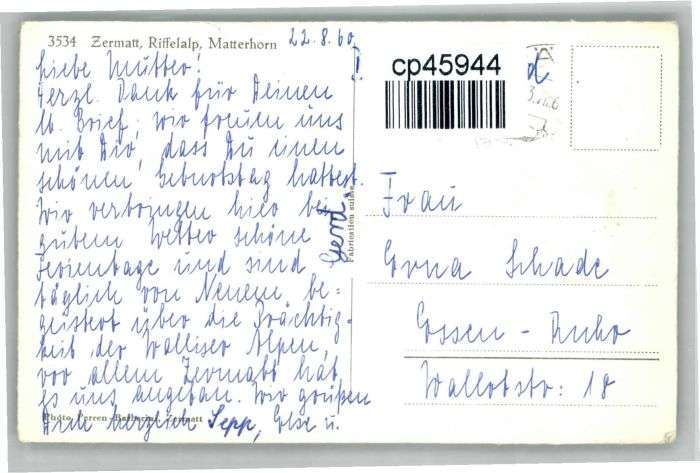 3534 Zermatt, Riffelalp, Matterhorn
22.8.60
Liebe Mutter!
Herzl. Dank für Deinen
lb. Brief, wir freuen uns
mit Dir, dass Du einen
schönen Geburtstag hattest.
Wir verbringen hier bei
gutem Wetter schöne
Ferientage und sind
täglich von Neuem be=
geistert über die Prächtig-
keit der Walliser Alpen,
vor allem Zermatt hat
es uns angetan. Wir grüßen
Dich herzlich Sepp, Else u.
Gerd.
Photo Perren-Barberini Zermatt
Fabrication suisse
cp45944
Frau
Erna Schade
Essen - Ruhr
Wallotstr: 18